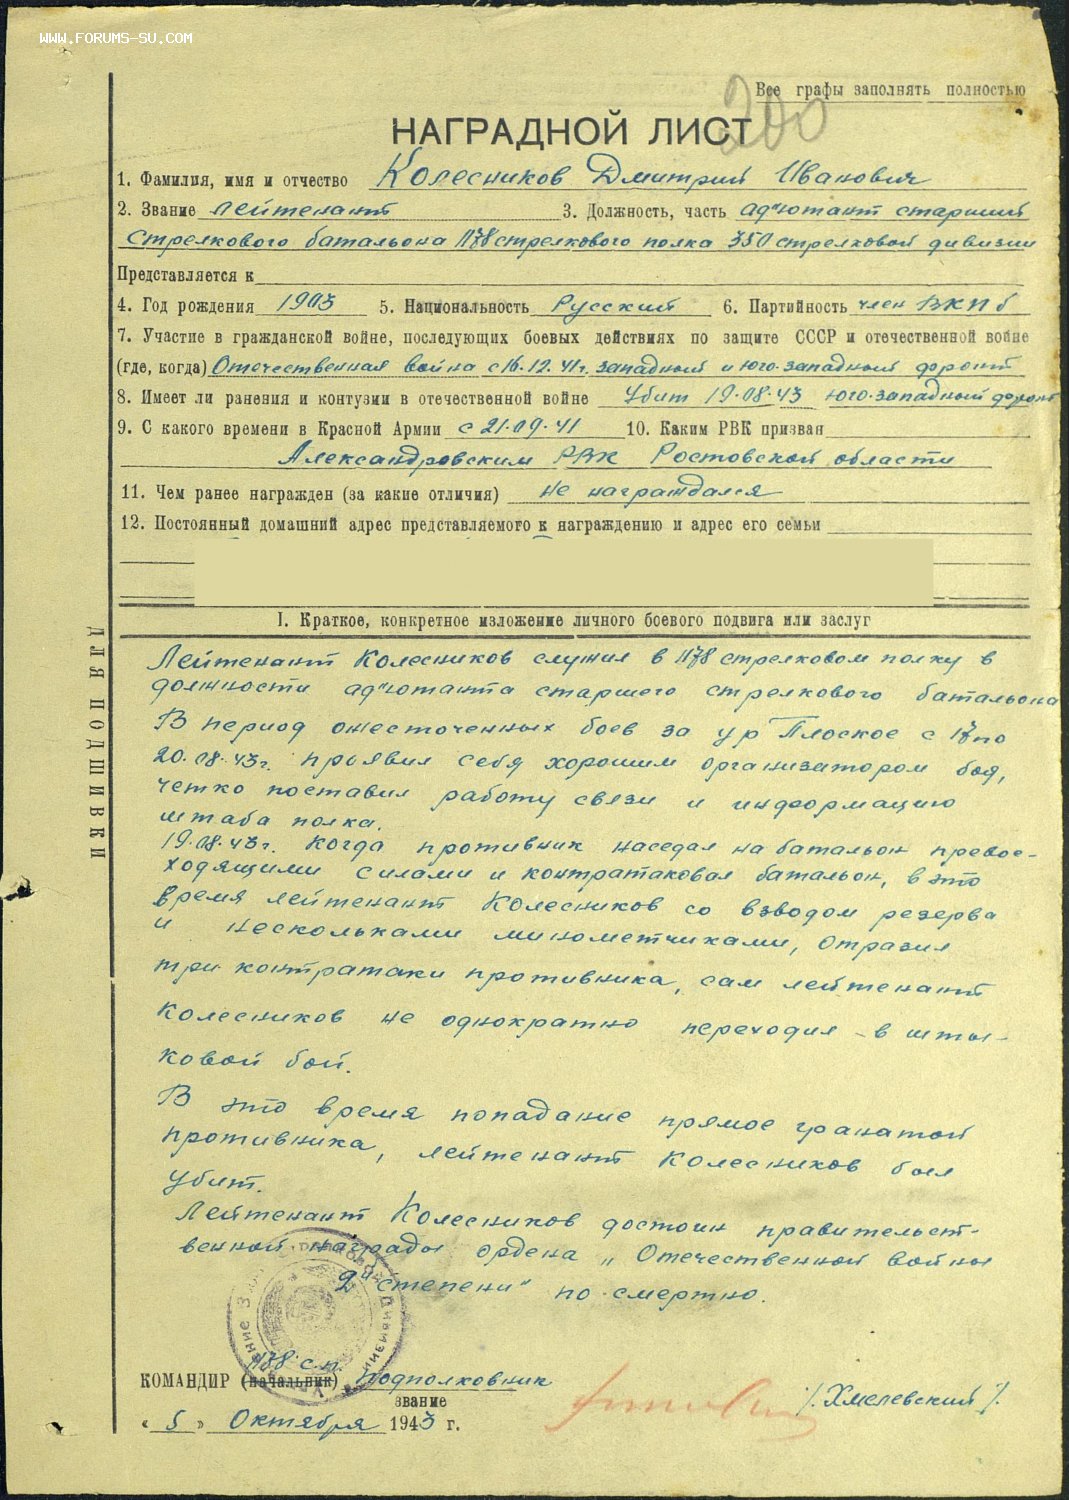 WWW.FORUMS-SU.COM
Все графы заполнять полностью
200
НАГРАДНОЙ ЛИСТ
1. Фамилия, имя и отчество Колесников Дмитрий Иванович
2. Звание лейтенант 3. Должность, часть ад'ютант старший
стрелкового батальона 1178 стрелкового полка 350 стрелковой дивизии
Представляется к
4. Год рождения 1903 5. Национальность Русский 6. Партийность член ВКПб
7. Участие в гражданской войне, последующих боевых действиях по защите СССР и отечественной войне
(где, когда) Отечественная война с 16.12.41г. западный и юго-западный фронт
8. Имеет ли ранения и контузии в отечественной войне Убит 19.08.43 юго-западный фронт
9. С какого времени в Красной Армии с 21.09.41 10. Каким РВК призван
Александровским РВК Ростовской области
11. Чем ранее награжден (за какие отличия) не награждался
12. Постоянный домашний адрес представляемого к награждению и адрес его семьи
I. Краткое, конкретное изложение личного боевого подвига или заслуг
Лейтенант Колесников служил в 1178 стрелковом полку в
должности ад'ютанта старшего стрелкового батальона
В период ожесточенных боев за ур Плоское с 17 по
20.08.43г. проявил себя хорошим организатором боя,
четко поставил работу связи и информацию
штаба полка.
19.08.43г. когда противник наседал на батальон превос-
ходящими силами и контратаковал батальон, в это
время лейтенант Колесников со взводом резерва
и нескольками минометчиками, отразил
три контратаки противника, сам лейтенант
Колесников не однократно переходил в шты-
ковой бой.
В это время попадание прямое гранатой
противника, лейтенант Колесников был
убит.
Лейтенант Колесников достоин правительст-
венной награды ордена „Отечественной войны
2й степени" по смертно.
1178 с.п.
КОМАНДИР (начальник) Подполковник
звание
/Хмелевский/.
« 5 » Октября 1943 г.
ДЛЯ ПОДШИВКИ